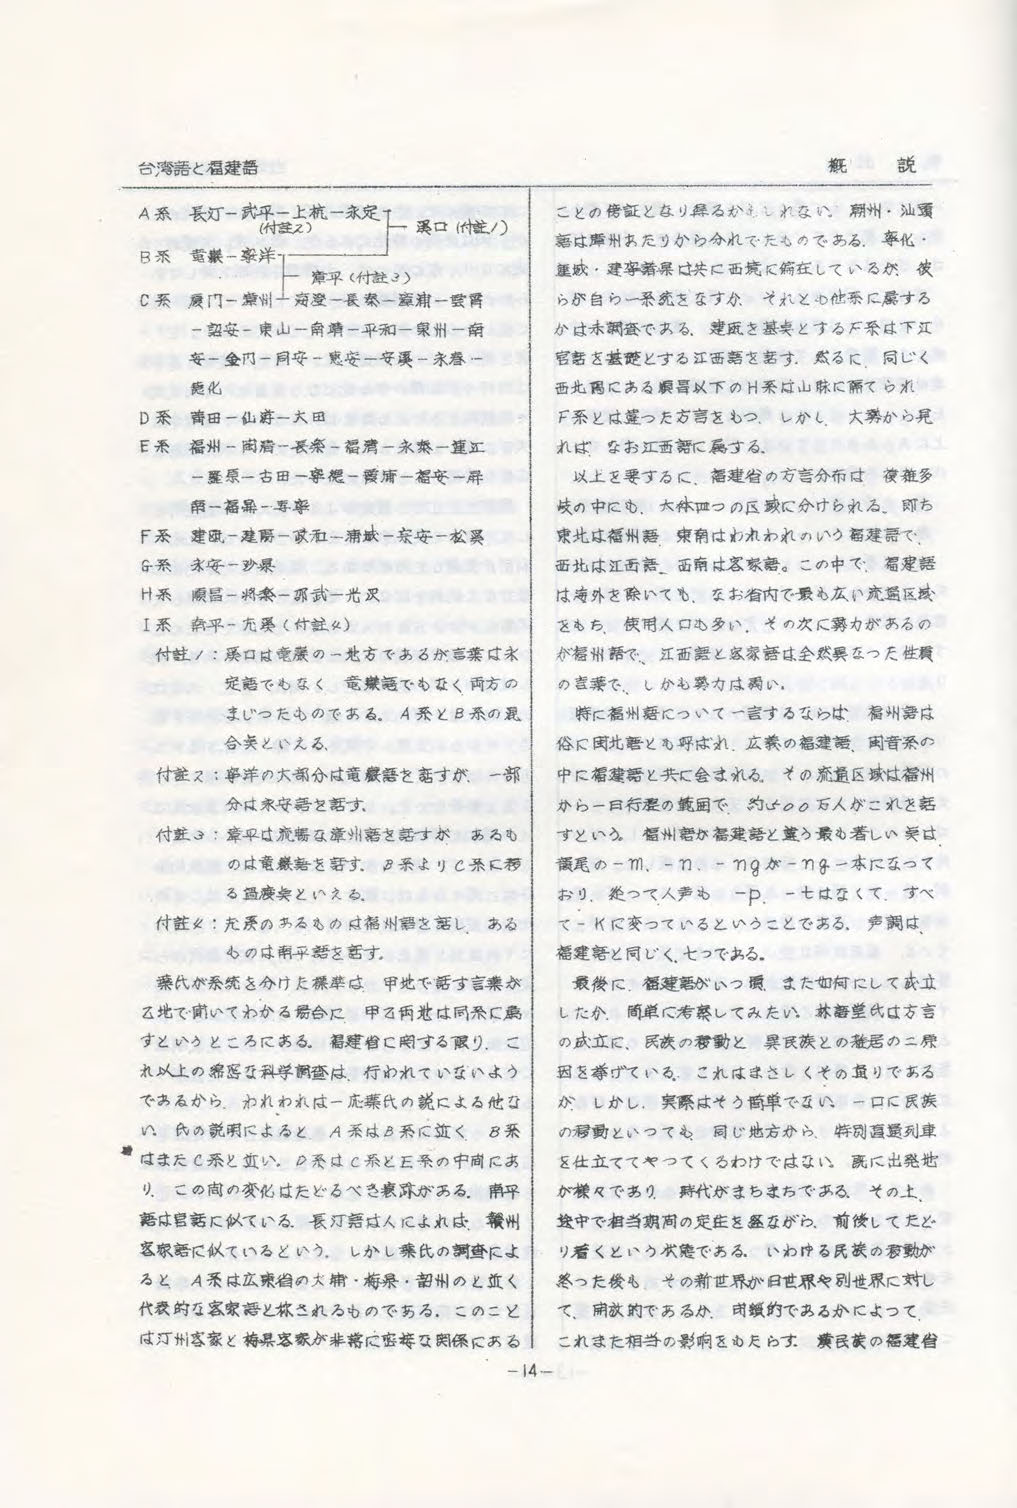 台湾語と福建語
概 説
A系 長汀-武平-上杭-永定
(付註2)
溪口(付註1)
B系 竜巖-寧洋
漳平(付註3)
C系 廈門-漳州-海澄-長泰-漳浦-雲霄
-詔安-東山-南靖-平和-泉州-南
安-金門-同安-恵安-安溪-永春-
徳化
D系 莆田-仙游-大田
E系 福州-閩清-長楽-福清-永泰-連江
-羅原-古田-寧徳-霞浦-福安-屏
南-福鼎-寿寧
F系 建甌-建陽-政和-浦城-崇安-松溪
G系 永安-沙県
H系 順昌-将楽-邵武-光沢
I系 南平-尤溪(付註4)
付註1:溪口は竜巖の一地方であるが言葉は永
定語でもなく、竜巖語でもなく両方の
まじったものである。A系とB系の混
合点といえる。
付註2:寧洋の大部分は竜巖語を話すが、一部
分は永安語を話す。
付註3:漳平は流暢な漳州語を話すが、あるも
のは竜巖語を話す。B系よりC系に移
る過度点といえる。
付註4:尤溪のあるものは福州語を話し、ある
ものは南平語を話す。
葉氏が系統を分けた標準は、甲地で話す言葉が
乙地で聞いてわかる場合に、甲乙両地は同系に属
すというところにある。福建省に関する限り、こ
れ以上の綿密な科学調査は、行われていないよう
であるから、われわれは一応葉氏の説による他な
い。氏の説明によると、A系はB系に近く、B系
はまたC系と近い。D系はC系とE系の中間にあ
り、この間の変化はたどるべき痕跡がある。南平
語は官話に似ている。長汀語は人によれば、贛州
客家語に似ているという。しかし葉氏の調査によ
ると、A系は広東省の大埔・梅県・韶州のと近く
代表的な客家語と称されるものである。このこと
は汀州客家と梅県客家が非常に密接な関係にある
ことの傍証となり得るかもしれない。潮州・汕頭
語は漳州あたりから分れでたものである。寧化・
連城・建寧諸県は共に西境に偏在しているが、彼
らが自ら一系統をなすか、それとも他系に属する
かは未調査である。建甌を基点とするF系は下江
官話を基礎とする江西語を話す。然るに、同じく
西北隅にある順昌以下のH系は山脉に隔てられ
F系とは違った方言をもつ。しかし、大勢から見
れば、なお江西語に属する。
以上を要するに、福建省の方言分布は、復雑多
岐の中にも、大体四つの区域に分けられる。即ち
東北は福州語、東南はわれわれのいう福建語で、
西北は江西語、西南は客家語。この中で、福建語
は海外を除いても、なお省内で最も広い流通区域
をもち、使用人口も多い。その次に勢力があるの
が福州語で、江西語と客家語は全然異なった性質
の言葉で、しかも勢力は弱い。
特に福州語について一言するならば、福州語は
俗に閩北語とも呼ばれ、広義の福建語、閩音系の
中に福建語と共に含まれる。その流通区域は福州
から一日行歴の範囲で、約500万人がこれを話
すという。福州語が福建語と違う最も著しい点は
韻尾の-m、-n、-ngが-ng一本になって
おり、従って入声も-p、-tはなくて、すべ
て-kに変っているということである。声調は、
福建語と同じく、七つである。
最後に、福建語がいつ頃、また如何にして成立
したか、簡単に考察してみたい。林語堂氏は方言
の成立に、民族の移動と、異民族との雑居の二原
因を挙げている。これはまさしくその通りである
が、しかし、実際はそう簡単でない。一口に民族
の移動といっても、同じ地方から、特別直通列車
を仕立ててやってくるわけではない。既に出発地
が様々であり、時代がまちまちである。その上、
途中で相当期間の定住を経ながら、前後してたど
り着くという状態である。いわゆる民族の移動が
終った後も、その新世界が旧世界や別世界に対し
て、開放的であるか、閉鎖的であるかによって、
これまた相当の影响をもたらす。漢民族の福建省
-14-